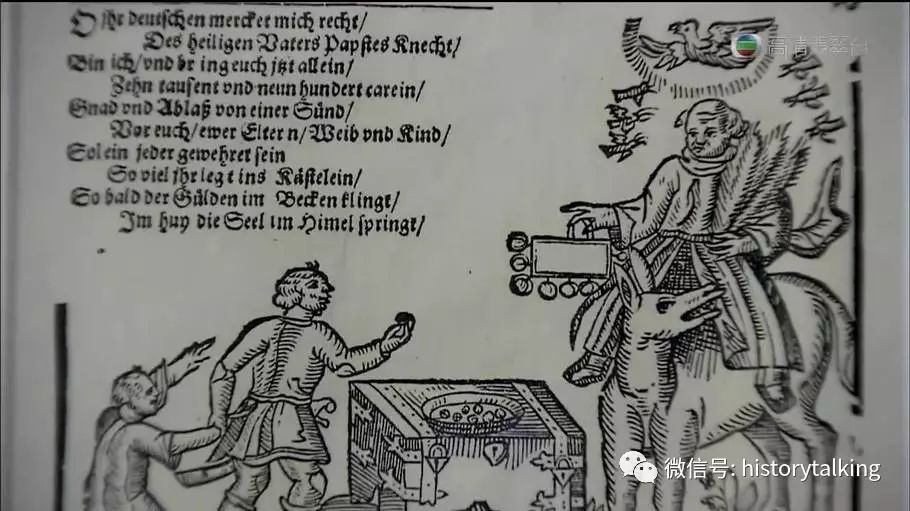 O jhr deutschen mercket mich recht/
Des heiligen Vaters Papstes Knecht/
Bin ich/ vnd br ing euch jtzt allein/
Zehn tausent vnd neun hundert carein/
Gnad vnd Ablaß von einer Sünd/
Vor euch/ ewer Elter n/ Weib vnd Kind/
Sol ein jeder gewehret sein
So viel jhr leg t ins Kästelein/
So bald der Gülden im Becken klingt/
Im huy die Seel im Himel springt/
高清翡翠台
微信号: historytalking